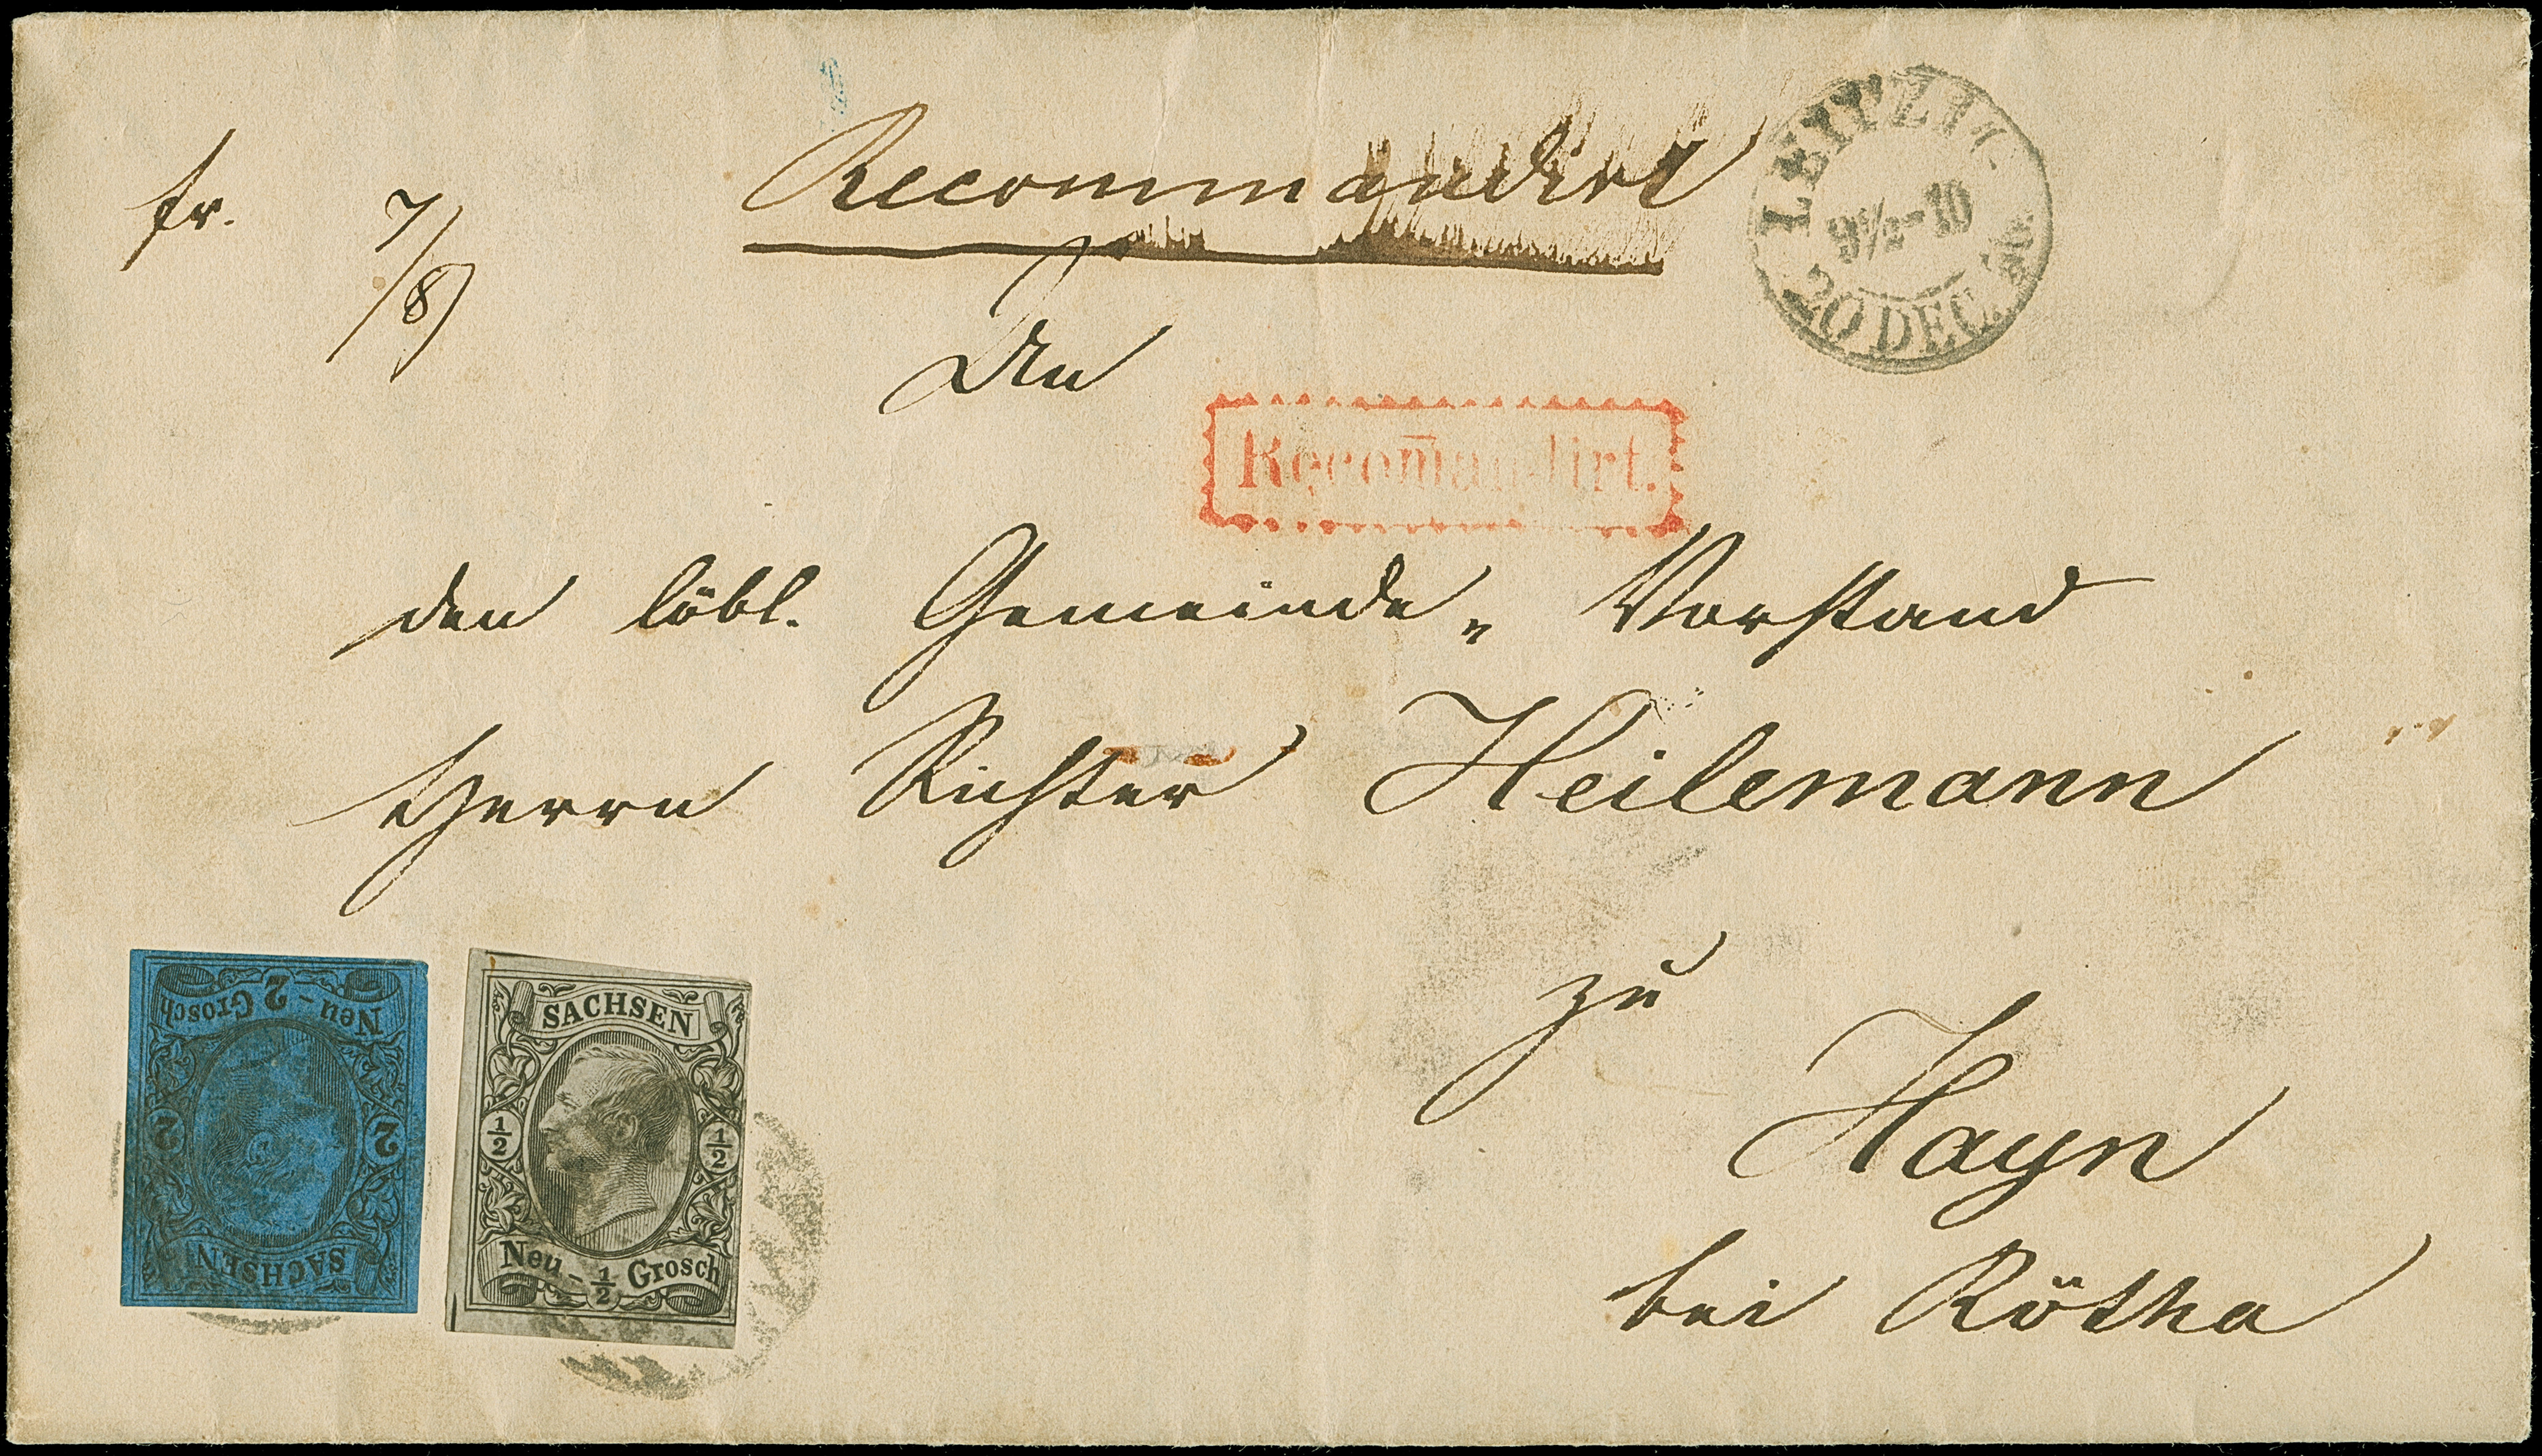 fr. 7/8
Recommandirt
LEIPZIG
9½-10
20 DEC.
An
Recom̄andirt.
den löbl. Gemeinde-Vorstand
Herrn Richter Heilemann
zu
Hayn
bei Rötha
SACHSEN
2
2
Neu-2 Grosch
SACHSEN
½
½
Neu-½ Grosch